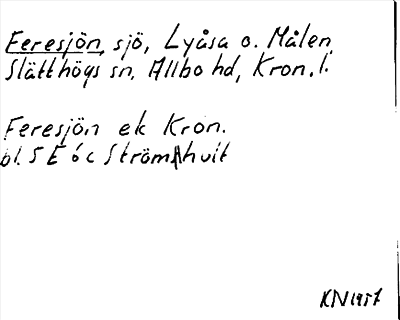 Feresjön, sjö, Lyåsa o. Målen,
Slätthögs sn, Allbo hd, Kron. l.
Feresjön ek Kron.
bl. 5 E 6 c Strömhult
KN 1957